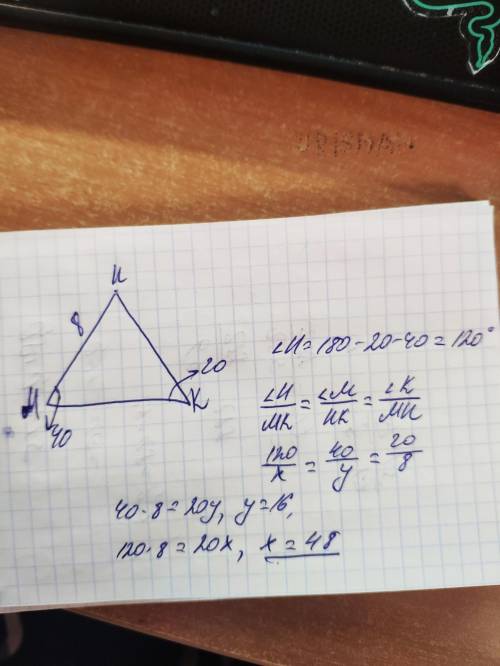 H
8
20
M
K
40
∠H = 180 - 20 - 40 = 120°
∠H/MK = ∠M/HK = ∠K/MH
120/x = 40/y = 20/8
40·8=20y, y=16,
120·8=20x, x=48